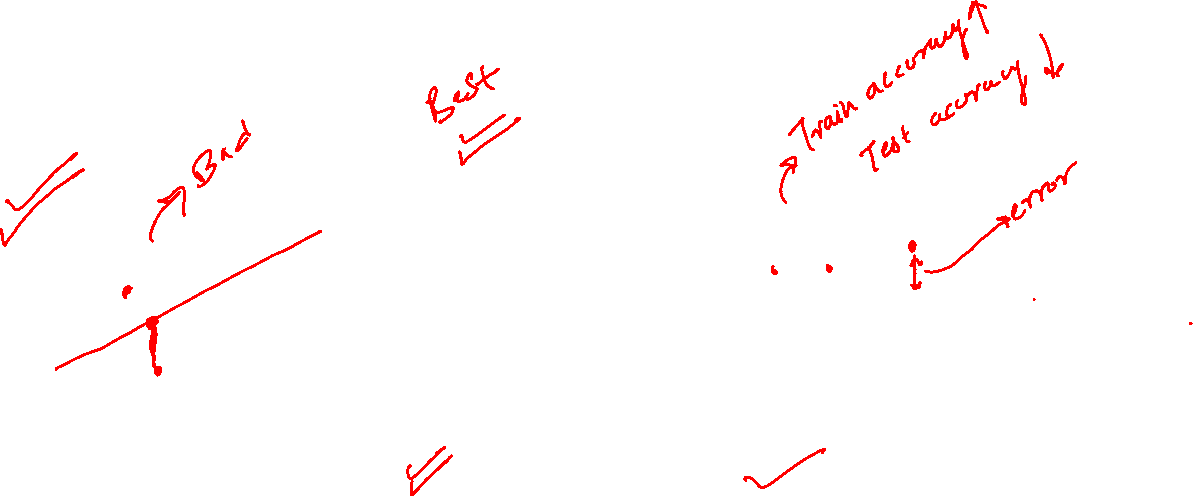 Bad
Best
Train accuracy ↑
Test accuracy ↓
error